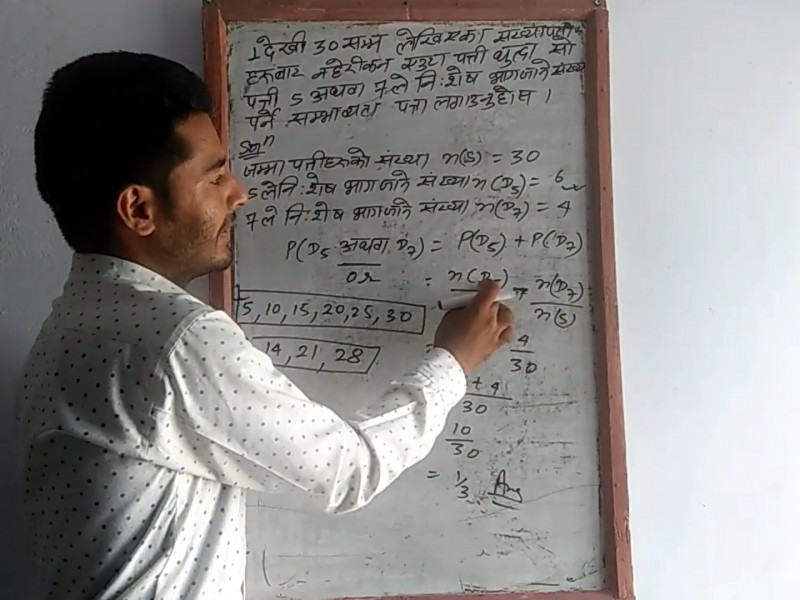 1 देखी 30 सम्म लेखिएका संख्यापत्ती
हरुबाट नहेरीकन एउटा पत्ती थुत्दा सो
पत्ती 5 अथवा 7 ले निःशेष भागजाने संख्या
पर्ने सम्भाव्यता पत्ता लगाउनुहोस ।
Solⁿ
जम्मा पत्तीहरुको संख्या n(S) = 30
5 लेनिःशेष भागजाने संख्या n(D₅) = 6
7 ले निःशेष भागजाने संख्या n(D₇) = 4
P(D₅ अथवा D₇) = P(D₅) + P(D₇)
or
= n(D + n(D₇)/n(S)
5, 10, 15, 20, 25, 30
= 4/30
14, 21, 28
+ 4/30
10/30
= 1/3 Ans